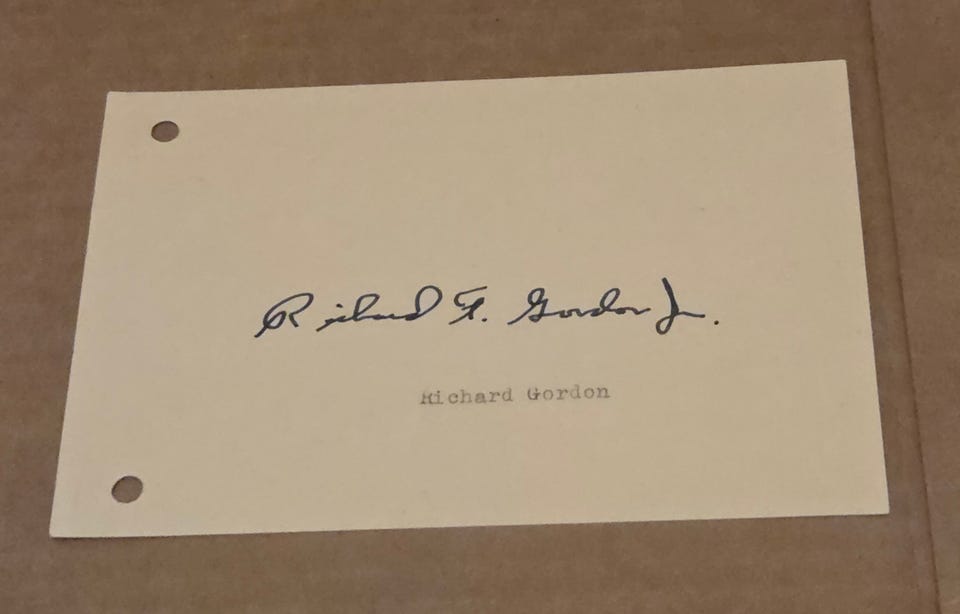 Richard F. Gordon Jr.
Richard Gordon